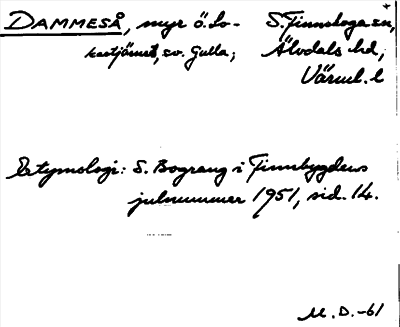 DAMMESÅ, myr ö. Lo-
kastjärnet, sv. Gulla;
S. Finnskoga sn,
Älvdals hd,
Värml. l
Etymologi: S. Bograng i Finnbygdens
julnummer 1951, sid. 14.
M. D. -61